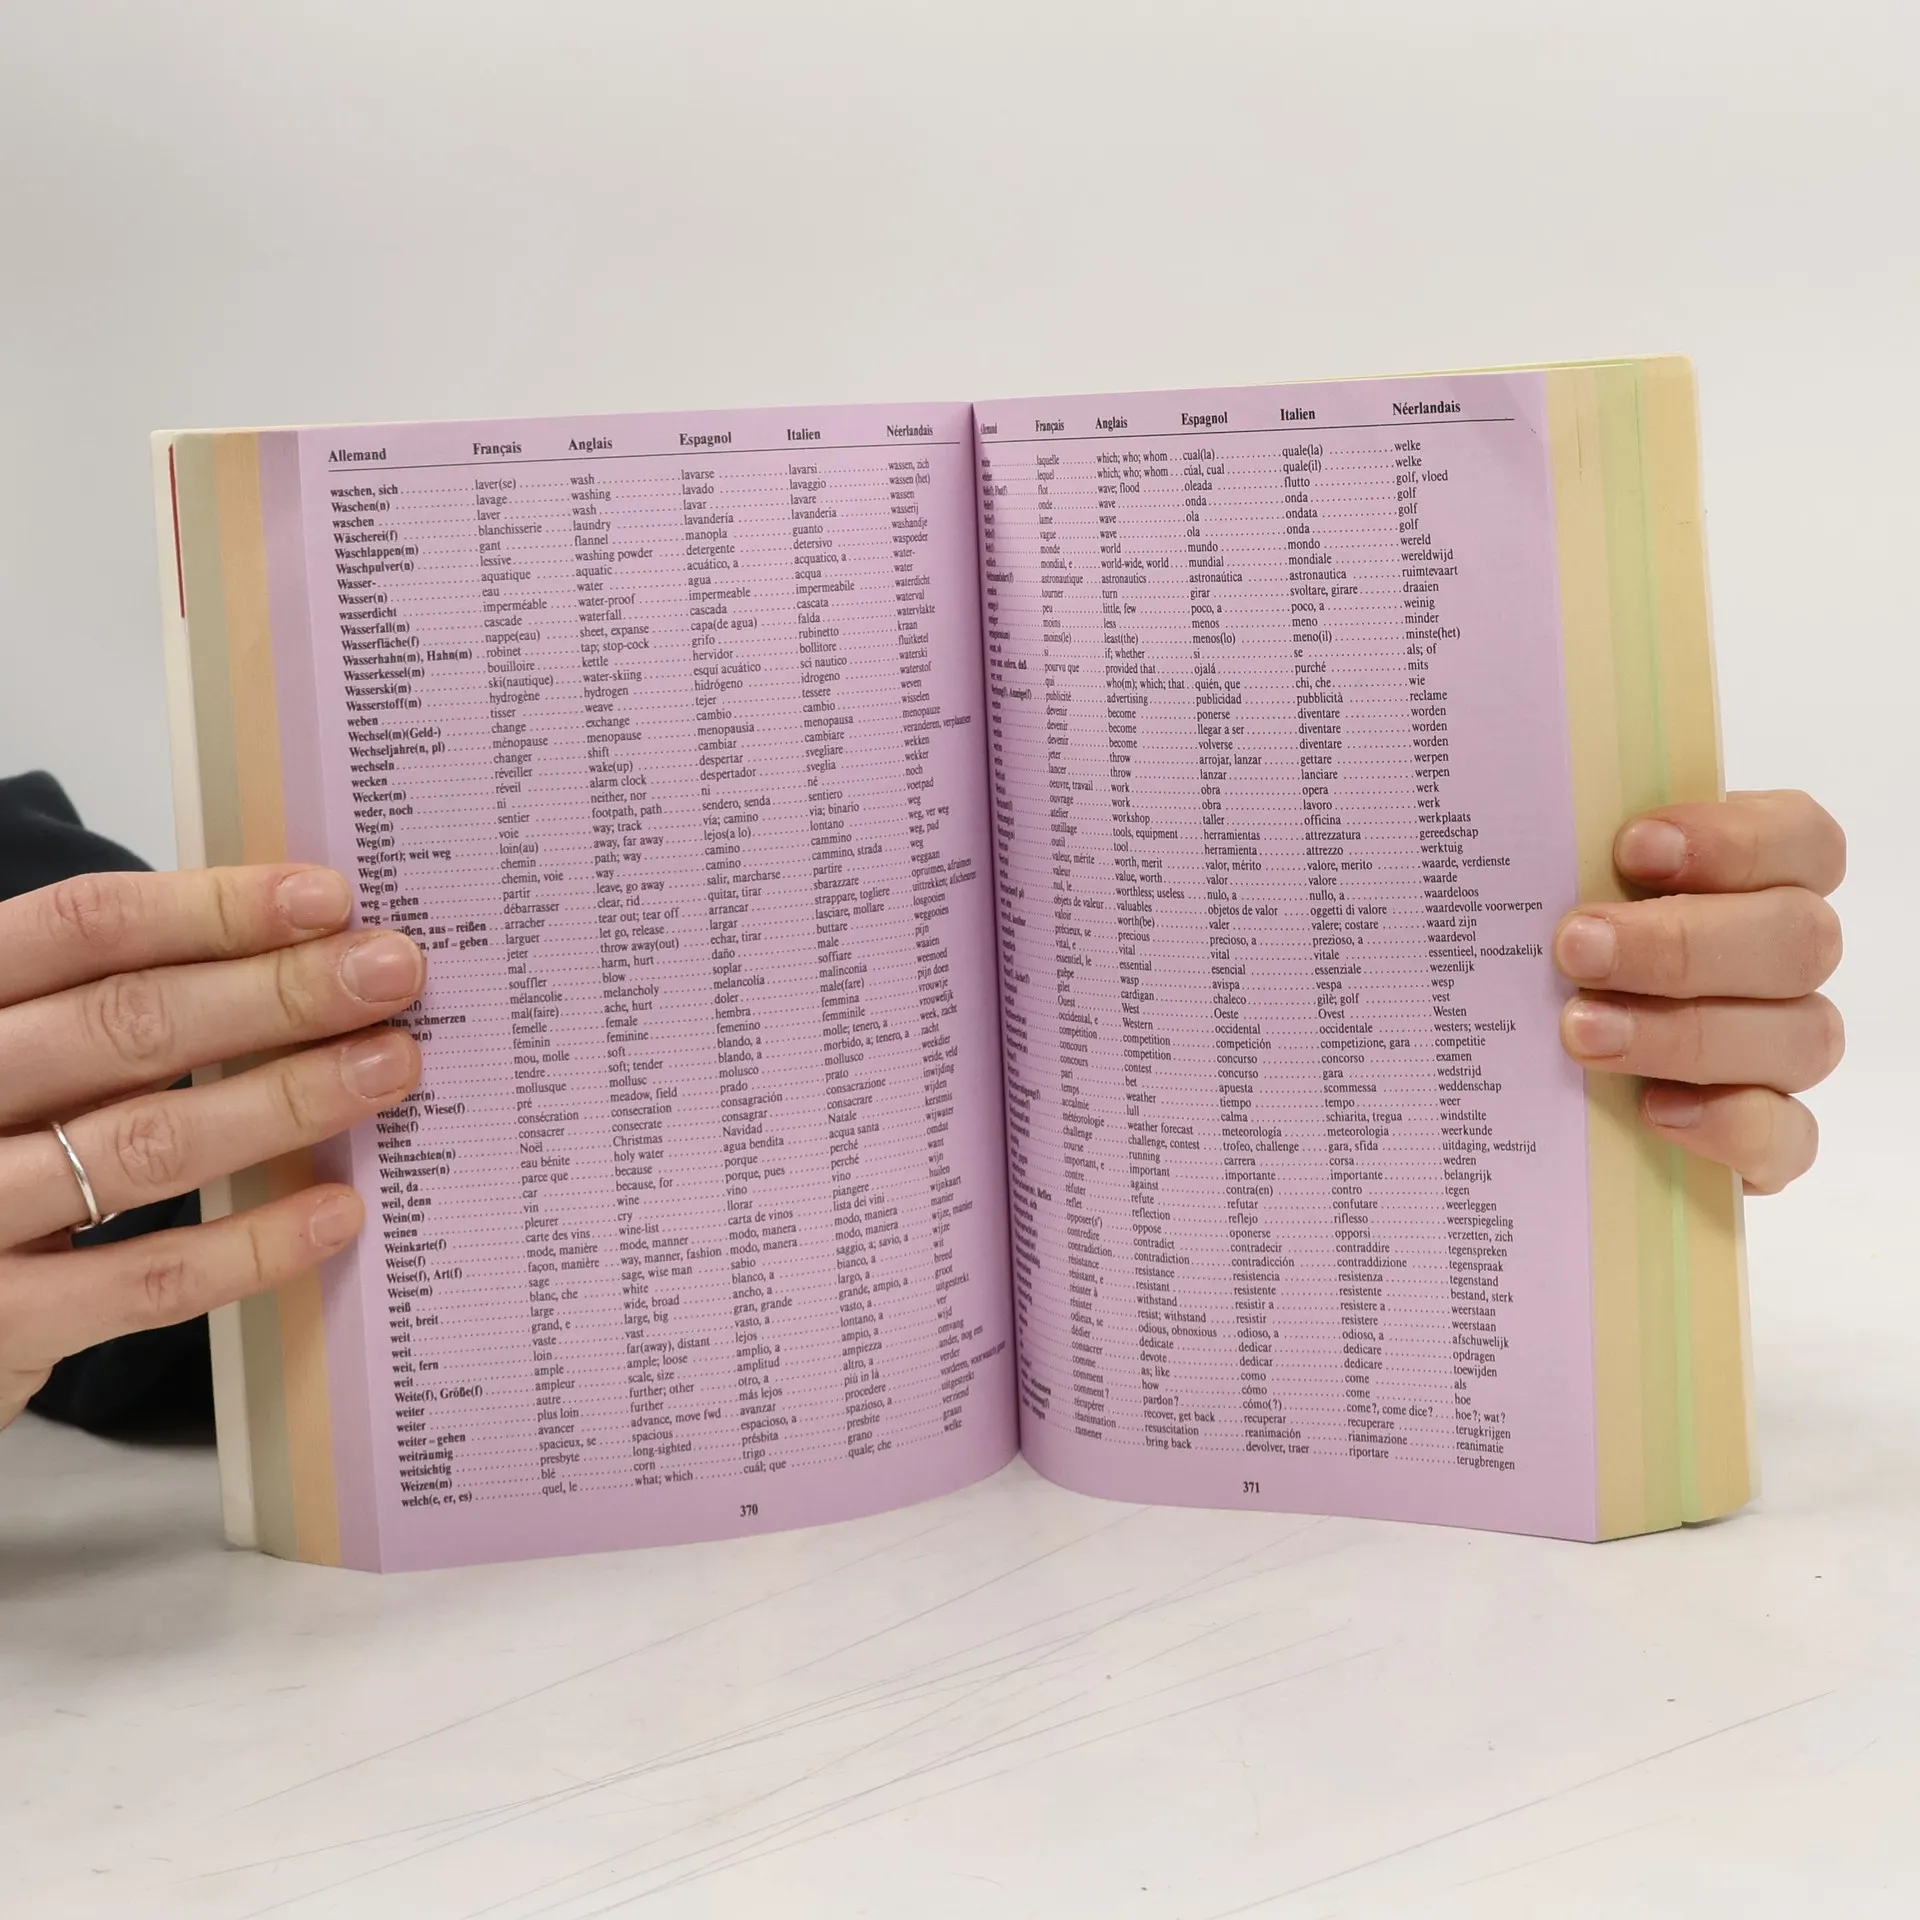 Allemand Français Anglais Espagnol Italien Néerlandais
waschen, sich laver(se) wash lavarse lavarsi wassen, zich
Waschen(n) lavage washing lavado lavaggio wassen (het)
waschen laver wash lavar lavare wassen
Wäscherei(f) blanchisserie laundry lavandería lavanderia wasserij
Waschlappen(m) gant flannel manopla guanto washandje
Waschpulver(n) lessive washing powder detergente detersivo waspoeder
Wasser- aquatique aquatic acuático, a acquatico, a water-
Wasser(n) eau water agua acqua water
wasserdicht imperméable water-proof impermeable impermeabile waterdicht
Wasserfall(m) cascade waterfall cascada cascata waterval
Wasserfläche(f) nappe(eau) sheet, expanse capa(de agua) falda watervlakte
Wasserhahn(m), Hahn(m) robinet tap; stop-cock grifo rubinetto kraan
Wasserkessel(m) bouilloire kettle hervidor bollitore fluitketel
Wasserski(m) ski(nautique) water-skiing esquí acuático sci nautico waterski
Wasserstoff(m) hydrogène hydrogen hidrógeno idrogeno waterstof
weben tisser weave tejer tessere weven
Wechsel(m)(Geld-) change exchange cambio cambio wisselen
Wechseljahre(n, pl) ménopause menopause menopausia menopausa menopauze
wechseln changer shift cambiar cambiare veranderen, verplaatsen
wecken réveiller wake(up) despertar svegliare wekken
Wecker(m) réveil alarm clock despertador sveglia wekker
weder, noch ni neither, nor ni né noch
Weg(m) sentier footpath, path sendero, senda sentiero voetpad
Weg(m) voie way; track vía; camino via; binario weg
weg(fort); weit weg loin(au) away, far away lejos(a lo) lontano weg, ver weg
Weg(m) chemin path; way camino cammino weg, pad
Weg(m) chemin, voie way camino cammino, strada weg
weg=gehen partir leave, go away salir, marcharse partire weggaan
weg=räumen débarrasser clear, rid quitar, tirar sbarazzare opruimen, afruimen
aus=reißen arracher tear out; tear off arrancar strappare, togliere uittrekken; afscheuren
auf=geben larguer let go, release largar lasciare, mollare losgooien
jeter throw away(out) echar, tirar buttare weggooien
mal harm, hurt daño male pijn
souffler blow soplar soffiare waaien
mélancolie melancholy melancolia malinconia weemoed
schmerzen mal(faire) ache, hurt doler male(fare) pijn doen
femelle female hembra femmina vrouwtje
féminin feminine femenino femminile vrouwelijk
mou, molle soft blando, a molle; tenero, a week, zacht
tendre soft; tender blando, a morbido, a; tenero, a zacht
mollusque mollusc molusco mollusco weekdier
Weide(f), Wiese(f) pré meadow, field prado prato weide, veld
Weihe(f) consécration consecration consagración consacrazione inwijding
weihen consacrer consecrate consagrar consacrare wijden
Weihnachten(n) Noël Christmas Navidad Natale kerstmis
Weihwasser(n) eau bénite holy water agua bendita acqua santa wijwater
weil, da parce que because porque perché omdat
weil, denn car because, for porque, pues perché want
Wein(m) vin wine vino vino wijn
weinen pleurer cry llorar piangere huilen
Weinkarte(f) carte des vins wine-list carta de vinos lista dei vini wijnkaart
Weise(f) mode, manière mode, manner modo, manera modo, maniera manier
Weise(f), Art(f) façon, manière way, manner, fashion modo, manera modo, maniera wijze, manier
Weise(m) sage sage, wise man sabio saggio, a; savio, a wijze
weiß blanc, che white blanco, a bianco, a wit
weit, breit large wide, broad ancho, a largo, a breed
weit grand, e large, big gran, grande grande, ampio, a groot
weit vaste vast vasto, a vasto, a uitgestrekt
weit, fern loin far(away), distant lejos lontano, a ver
weit ample ample; loose amplio, a ampio, a wijd
Weite(f), Größe(f) ampleur scale, size amplitud ampiezza omvang
weiter autre further; other otro, a altro, a ander, nog een
weiter plus loin further más lejos più in là verder
weiter=gehen avancer advance, move fwd avanzar procedere vorderen, voorwaarts gaan
weiträumig spacieux, se spacious espacioso, a spazioso, a uitgestrekt
weitsichtig presbyte long-sighted présbita presbite verziend
Weizen(m) blé corn trigo grano graan
welch(e, er, es) quel, le what; which cuál; que quale; che welke
370
Français Anglais Espagnol Italien Néerlandais
laquelle which; who; whom cual(la) quale(la) welke
lequel which; who; whom cúal, cual quale(il) welke
flot wave; flood oleada flutto golf, vloed
onde wave onda onda golf
lame wave ola ondata golf
vague wave ola onda golf
monde world mundo mondo wereld
mondial, e world-wide, world mundial mondiale wereldwijd
astronautique astronautics astronaútica astronautica ruimtevaart
tourner turn girar svoltare, girare draaien
peu little, few poco, a poco, a weinig
moins less menos meno minder
moins(le) least(the) menos(lo) meno(il) minste(het)
si if; whether si se als; of
pourvu que provided that ojalá purché mits
qui who(m); which; that quién, que chi, che wie
publicité advertising publicidad pubblicità reclame
devenir become ponerse diventare worden
devenir become llegar a ser diventare worden
devenir become volverse diventare worden
jeter throw arrojar, lanzar gettare werpen
lancer throw lanzar lanciare werpen
oeuvre, travail work obra opera werk
ouvrage work obra lavoro werk
atelier workshop taller officina werkplaats
outillage tools, equipment herramientas attrezzatura gereedschap
outil tool herramienta attrezzo werktuig
valeur, mérite worth, merit valor, mérito valore, merito waarde, verdienste
valeur value, worth valor valore waarde
nul, le worthless; useless nulo, a nullo, a waardeloos
objets de valeur valuables objetos de valor oggetti di valore waardevolle voorwerpen
valoir worth(be) valer valere; costare waard zijn
précieux, se precious precioso, a prezioso, a waardevol
vital, e vital vital vitale essentieel, noodzakelijk
essentiel, le essential esencial essenziale wezenlijk
guêpe wasp avispa vespa wesp
gilet cardigan chaleco gilè; golf vest
Ouest West Oeste Ovest Westen
occidental, e Western occidental occidentale westers; westelijk
compétition competition competición competizione, gara competitie
concours competition concurso concorso examen
concours contest concurso gara wedstrijd
pari bet apuesta scommessa weddenschap
temps weather tiempo tempo weer
accalmie lull calma schiarita, tregua windstilte
météorologie weather forecast meteorología meteorologia weerkunde
challenge challenge, contest trofeo, challenge gara, sfida uitdaging, wedstrijd
course running carrera corsa wedren
important, e important importante importante belangrijk
contre against contra(en) contro tegen
réfuter refute refutar confutare weerleggen
reflet reflection reflejo riflesso weerspiegeling
opposer(s') oppose oponerse opporsi verzetten, zich
contredire contradict contradecir contraddire tegenspreken
contradiction contradiction contradicción contraddizione tegenspraak
résistance resistance resistencia resistenza tegenstand
résistant, e resistant resistente resistente bestand, sterk
résister à withstand resistir a resistere a weerstaan
résister resist; withstand resistir resistere weerstaan
odieux, se odious, obnoxious odioso, a odioso, a afschuwelijk
dédier dedicate dedicar dedicare opdragen
consacrer devote dedicar dedicare toewijden
comme as; like como come als
comment how cómo come hoe
comment? pardon? cómo(?) come?, come dice? hoe?; wat?
récupérer recover, get back recuperar recuperare terugkrijgen
réanimation resuscitation reanimación rianimazione reanimatie
ramener bring back devolver, traer riportare terugbrengen
371